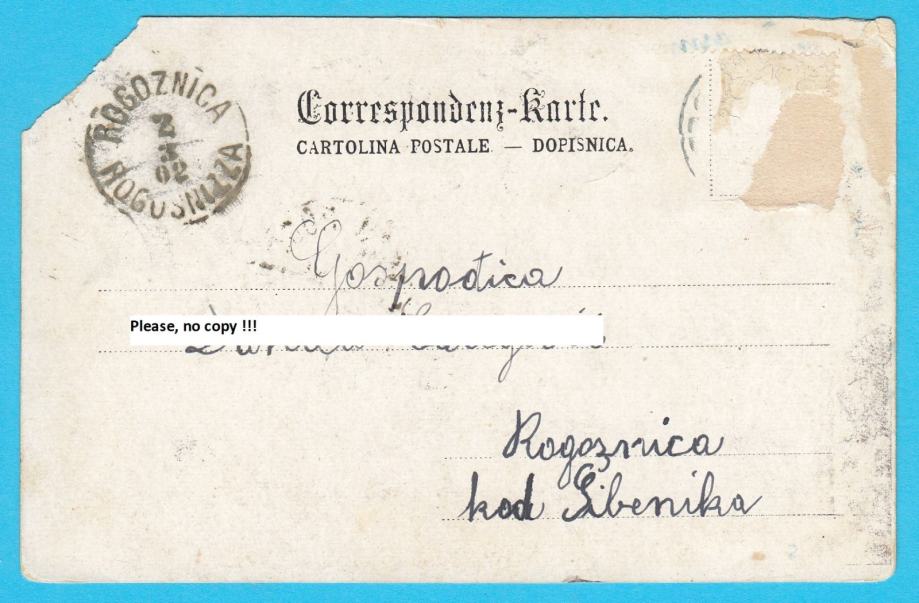 ROGOZNICA
2
3
02
ROGOSNIZZA
Correspondenz-Karte.
CARTOLINA POSTALE. — DOPISNICA.
Gospođica
Please, no copy !!!
Rogoznica
kod Šibenika